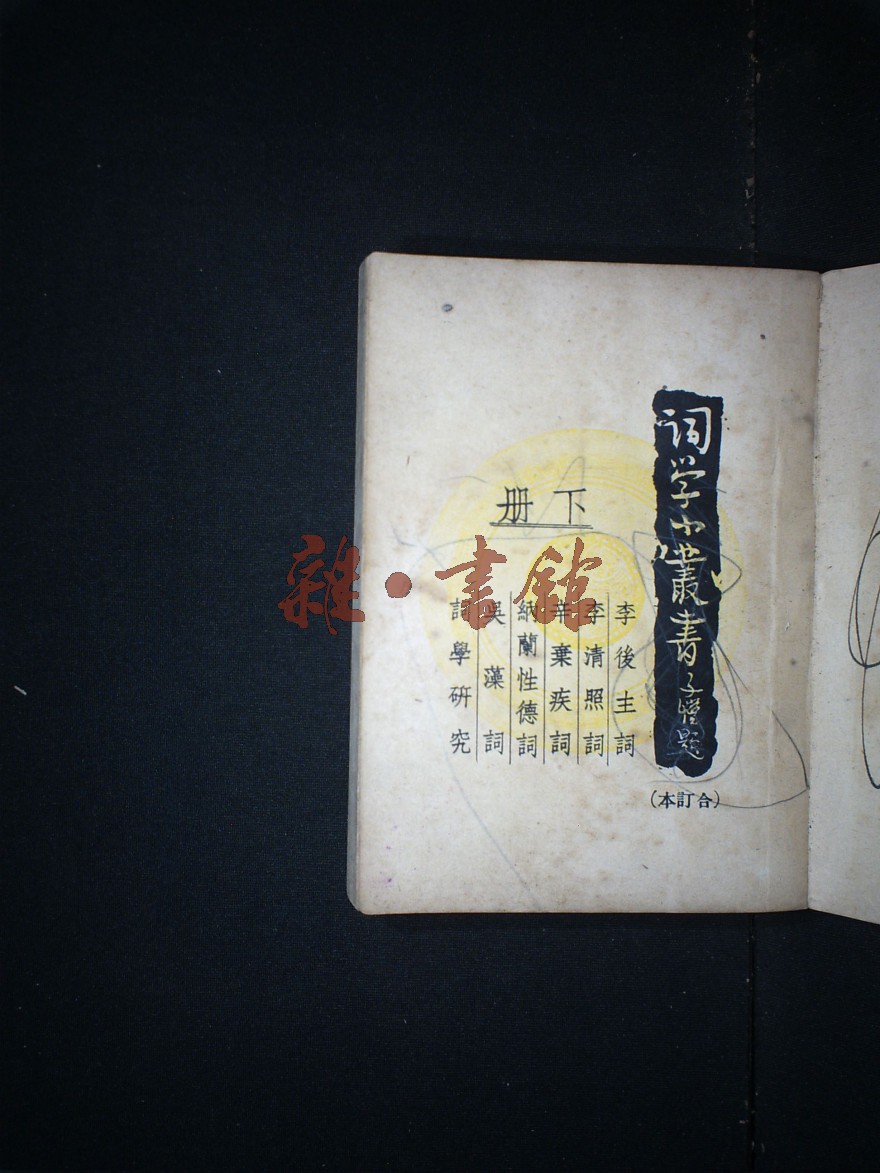 词学小丛書
子愷題
（合訂本）
下册
李後主詞
李清照詞
辛棄疾詞
納蘭性德詞
吳藻詞
詞學研究
雜·書館